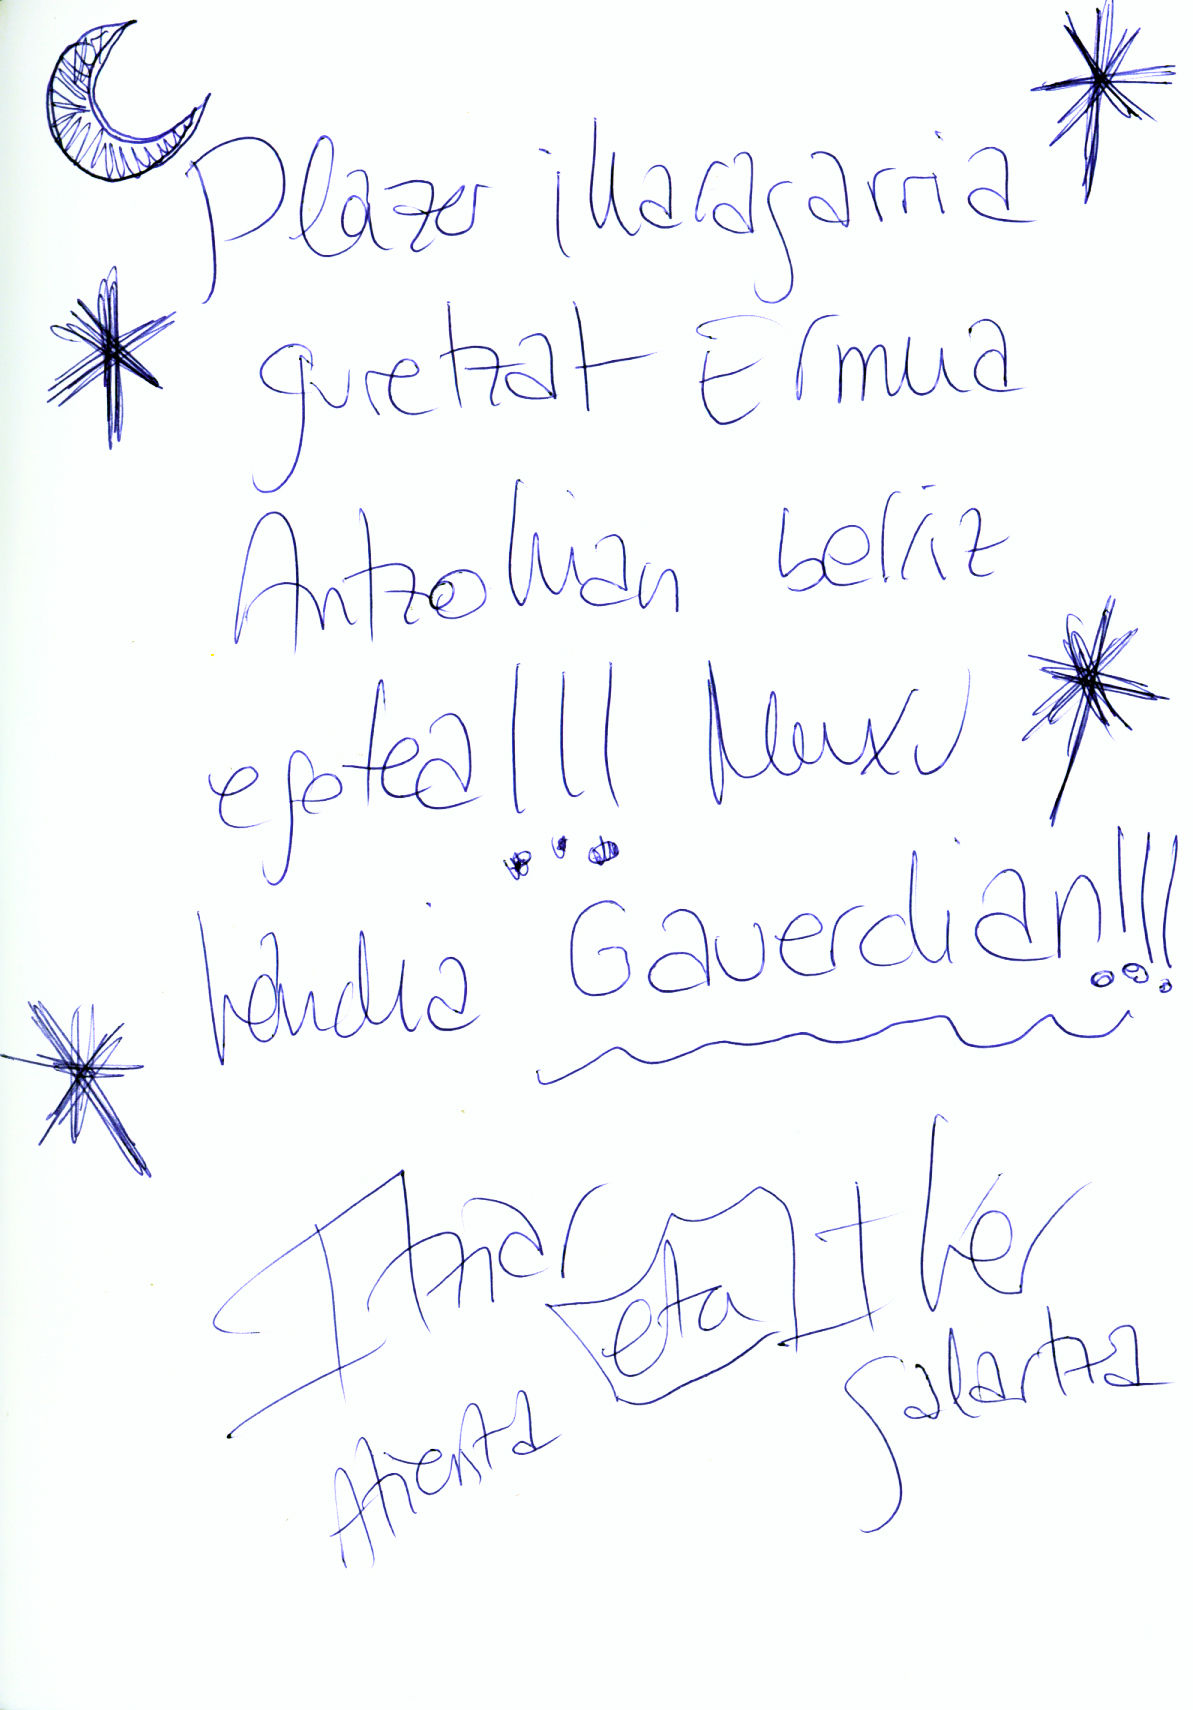 Plazer ikaragarria
guretzat Ermua
Antzokian berriz
egotea!!! Muxu
handia Gauerdian!!!
Itziar eta Iker
Atienza Galartza